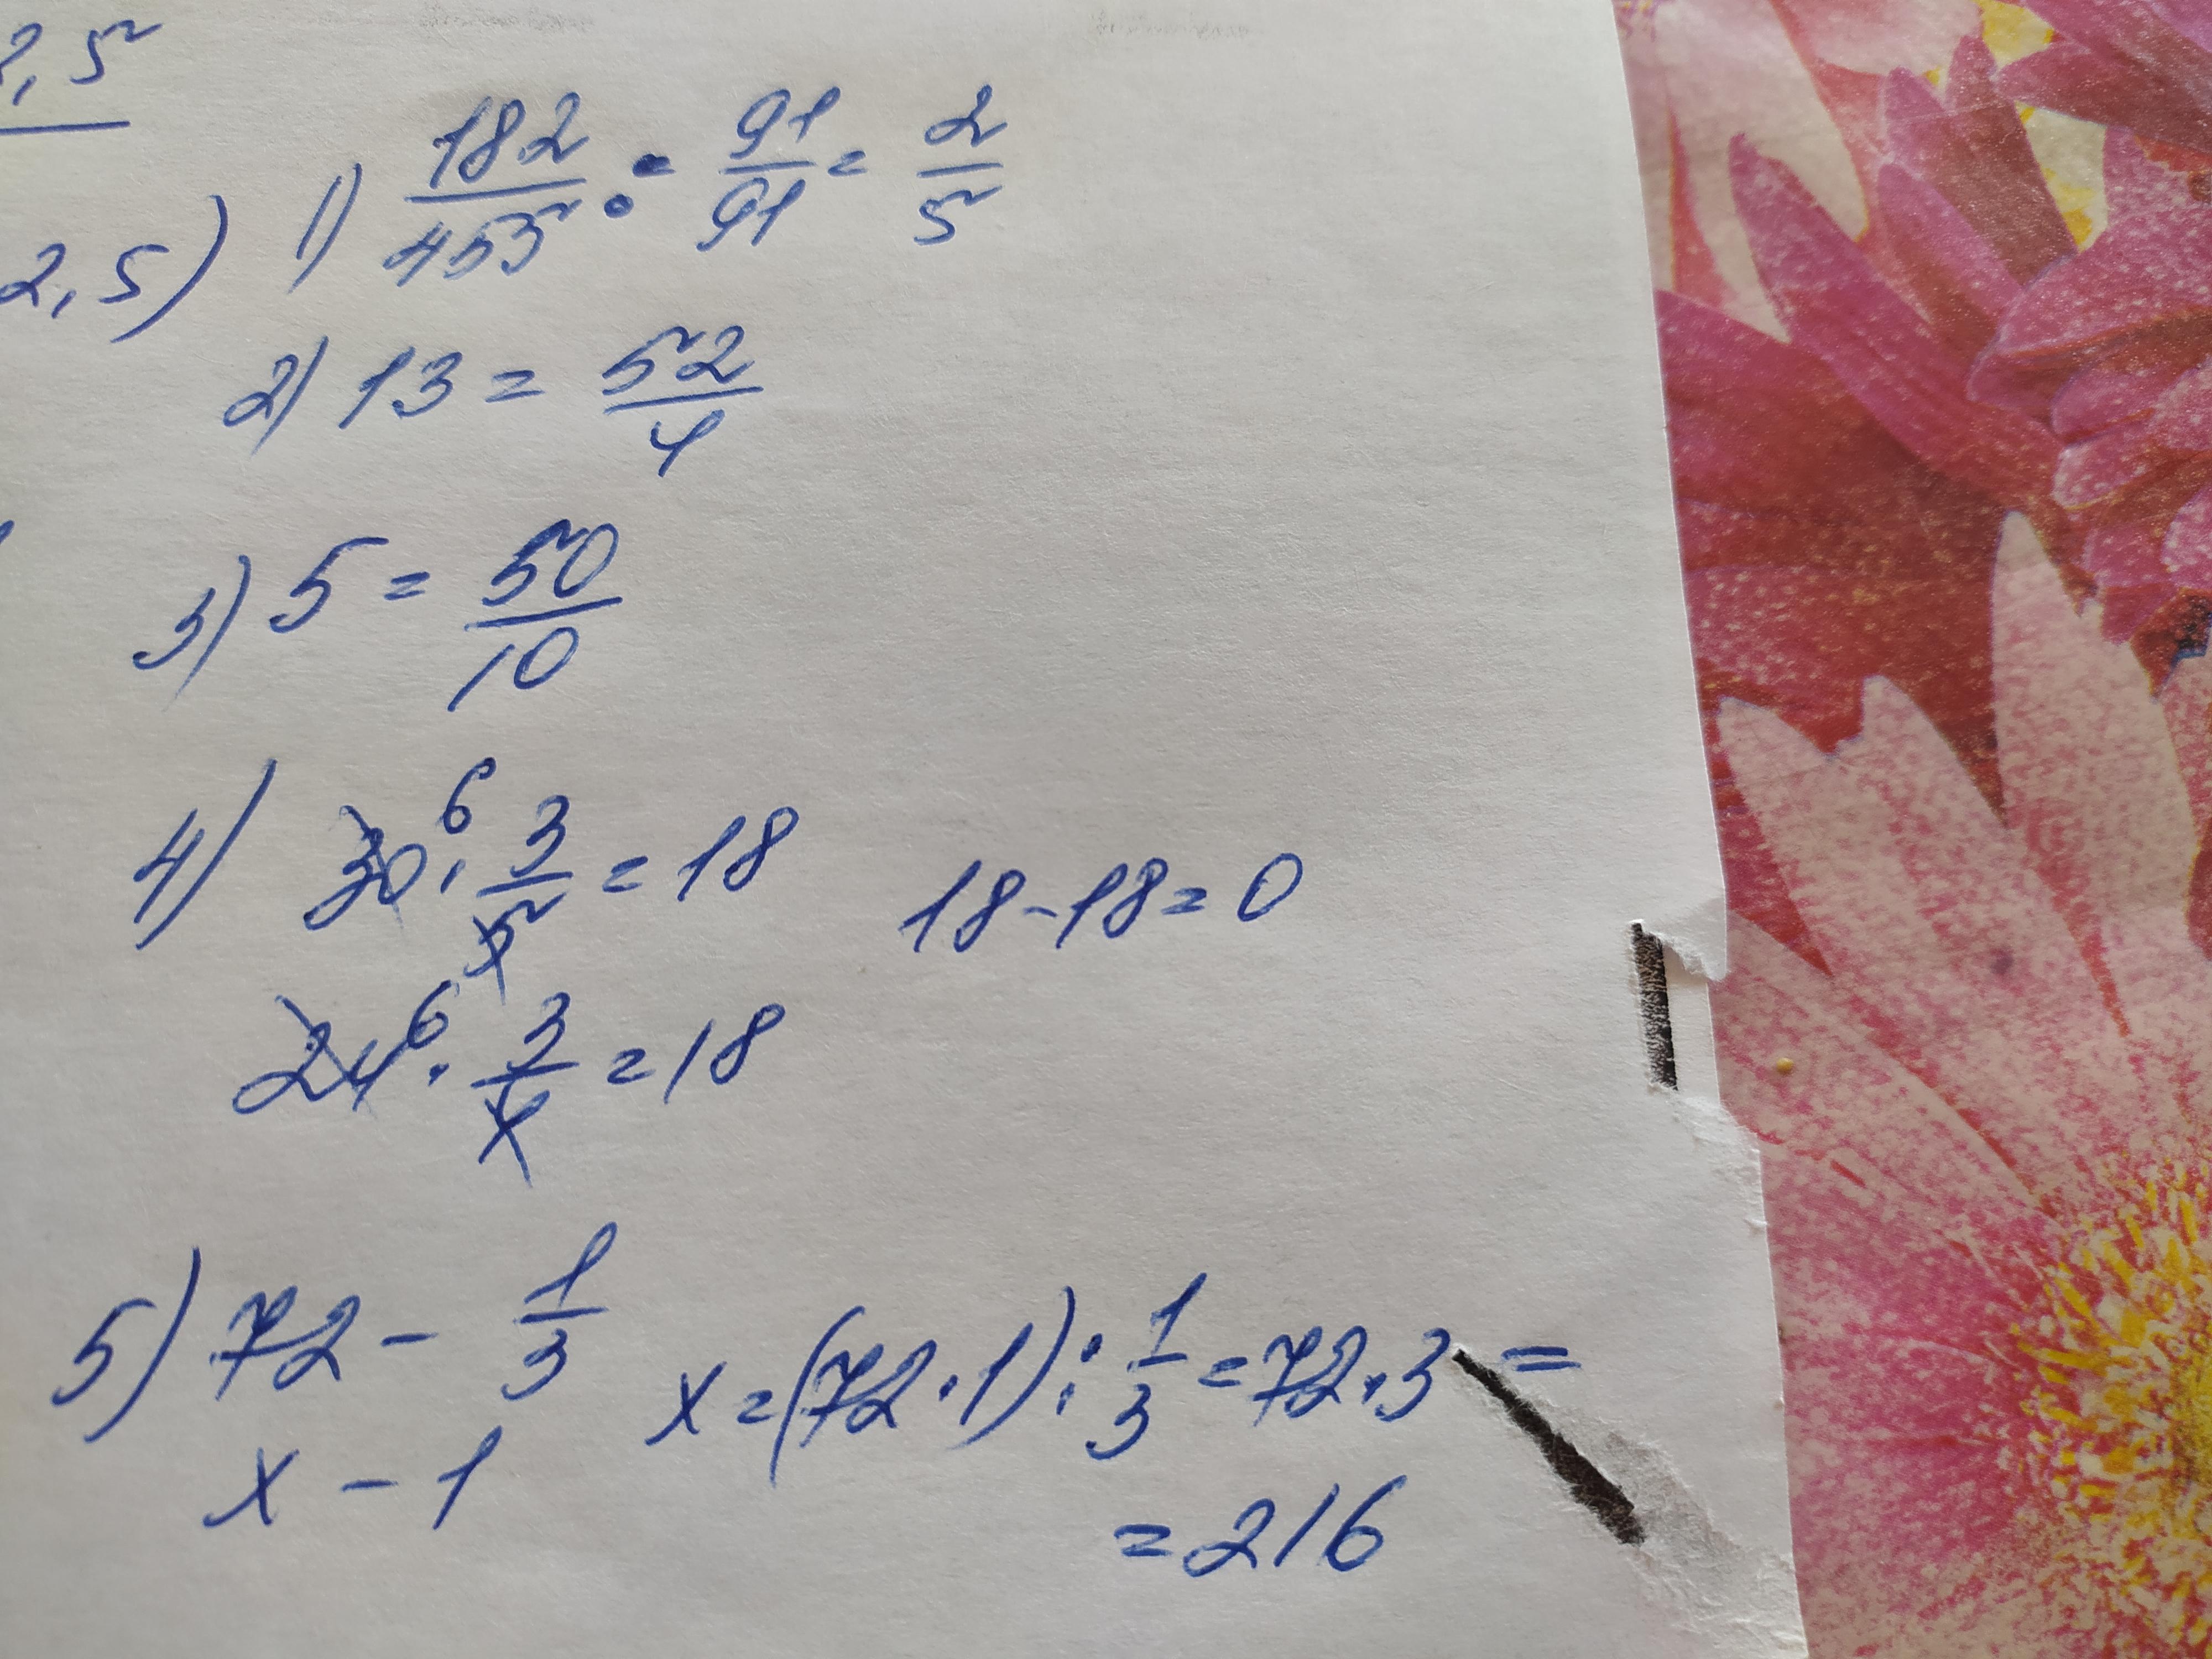 2,5
2,5)
1) 182/455 : = 91/91 = 2/5
2) 13 = 52/4
3) 5 = 50/10
4) 30 6 · 3/5 = 18 18-18=0
24 6 · 3/4 = 18
5) 72 - 1/3
x - 1
x = (72·1) : 1/3 = 72·3 =
= 216